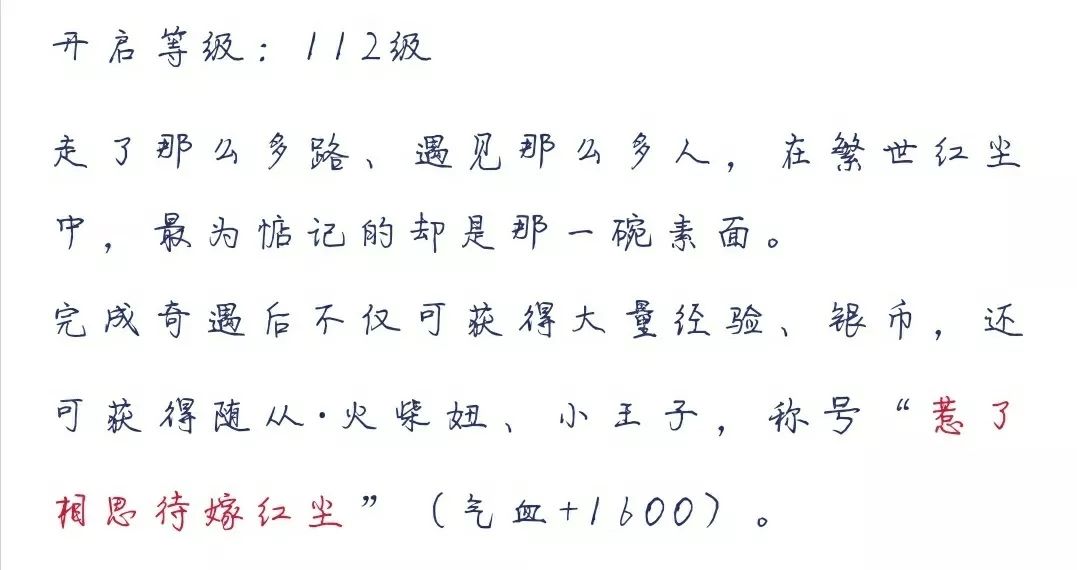 开启等级：112级
走了那么多路、遇见那么多人，在繁世红尘
中，最为惦记的却是那一碗素面。
完成奇遇后不仅可获得大量经验、银币，还
可获得随从·火柴妞、小王子，称号“惹了
相思待嫁红尘”（气血+1600）。